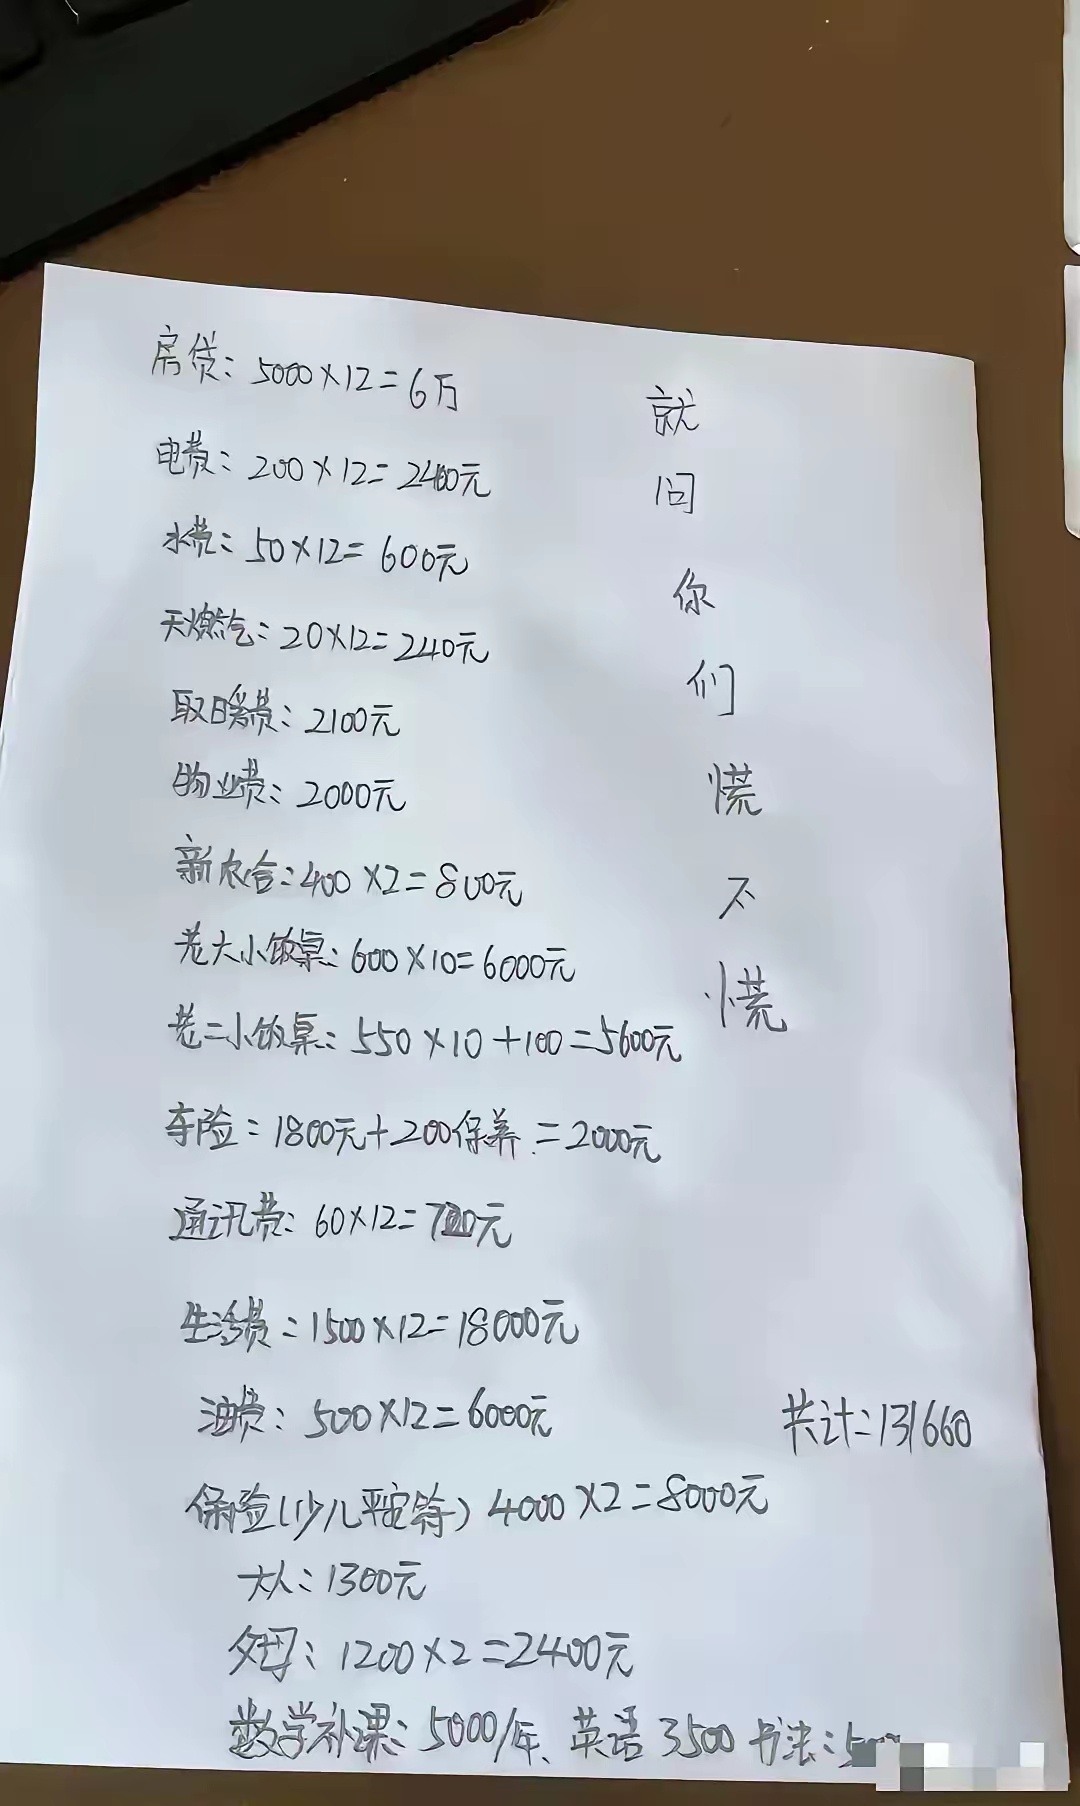 房贷：5000×12=6万
电费：200×12=2400元
水费：50×12=600元
天燃气：20×12=240元
取暖费：2100元
物业费：2000元
新农合：400×2=800元
老大小饭桌：600×10=6000元
老二小饭桌：550×10+100=5600元
车险：1800元+200保养=2000元
通讯费：60×12=720元
生活费：1500×12=18000元
油费：500×12=6000元
保险(少儿平安等) 4000×2=8000元
大人：1300元
父母：1200×2=2400元
数学补课：5000/年、英语3500 书法：
就
问
你
们
慌
不
慌
共计：131660